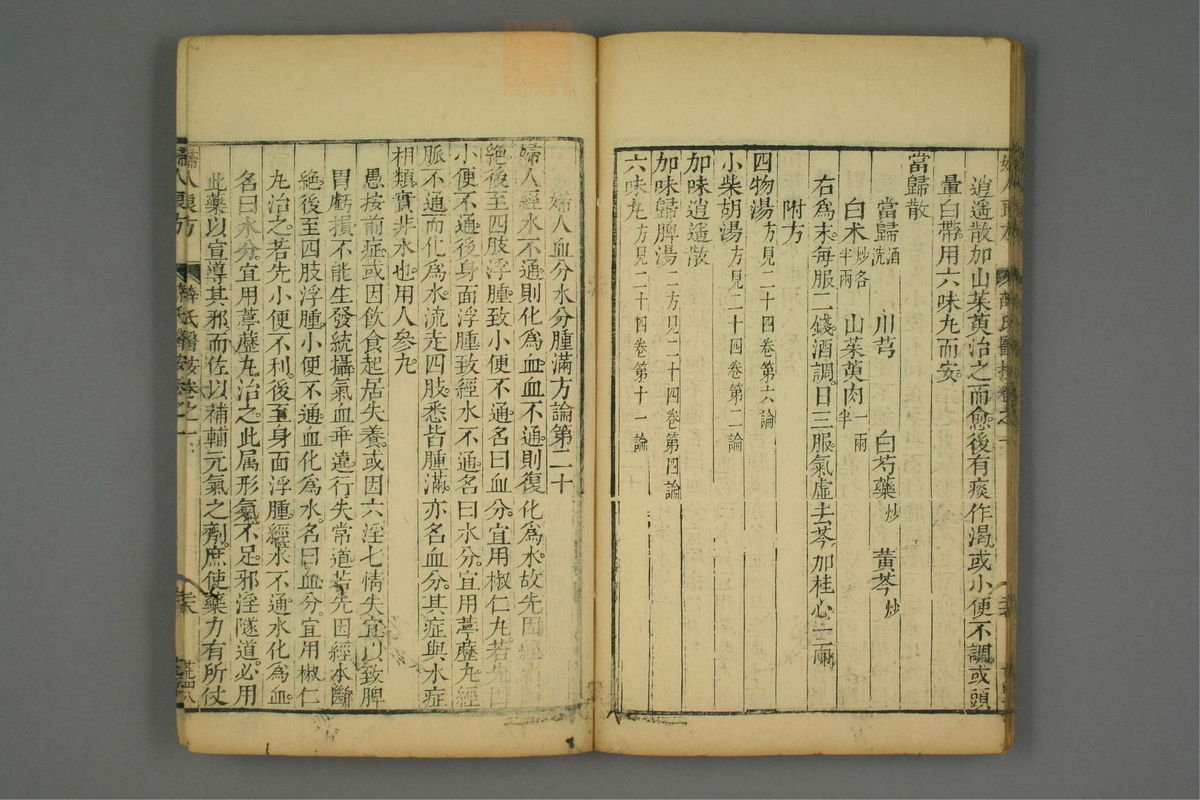 逍遥散加山茱萸治之而愈後有痰作渴或小便不調或頭
暈白帶用六味丸而安
當歸散
當歸酒洗 川芎 白芍藥炒 黃芩炒
白术炒各半兩 山茱萸肉一兩半
右為末每服二錢酒調日三服氣虛去芩加桂心一兩
附方
四物湯方見二十四卷第六論
小柴胡湯方見二十四卷第二論
加味逍遥散
加味歸脾湯二方見二十四卷第四論
六味丸方見二十四卷第十一論
婦人血分水分腫滿方論第二十
婦人經水不通則化為血血不通則復化為水故先因經
絶後至四肢浮腫致小便不通名曰血分宜用椒仁丸若先因
小便不通後身面浮腫致經水不通名曰水分宜用葶藶丸經
脈不通而化為水流走四肢悉皆腫滿亦名血分其症與水症
相類實非水也用人參丸
愚按前症或因飲食起居失養或因六淫七情失宜以致脾
胃虧損不能生發統攝氣血乖違行失常道若先因經水斷
絶後至四肢浮腫小便不通血化為水名曰血分宜用椒仁
丸治之若先小便不利後至身面浮腫經水不通水化為血
名曰水分宜用葶藶丸治之此属形氣不足邪淫隧道必用
此藥以宣導其邪而佐以補輔元氣之劑庶使藥力有所仗
婦人良方 薛氏醫按卷之一